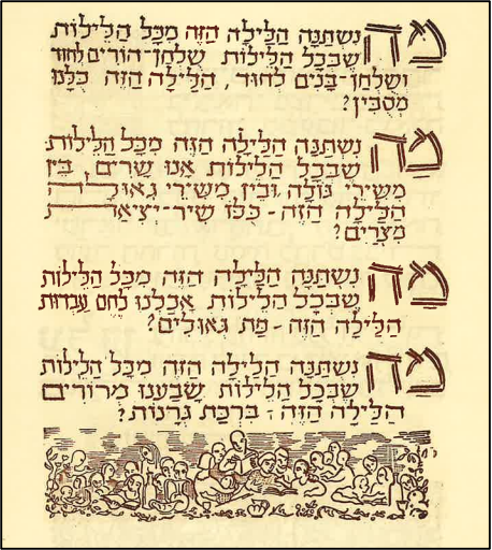 מַה נִשְׁתַּנָּה הַלַּיְלָה הַזֶּה מִכָּל הַלֵּילוֹת
שֶׁבְּכָל הַלֵּילוֹת שֻׁלְחַן-הוֹרִים לְחוּד
וְשֻׁלְחַן-בָּנִים לְחוּד, הַלַּיְלָה הַזֶּה כֻּלָּנוּ
מְסֻבִּין?
מַה נִשְׁתַּנָּה הַלַּיְלָה הַזֶּה מִכָּל הַלֵּילוֹת
שֶׁבְּכָל הַלֵּילוֹת אָנוּ שָׁרִים, בֵּין
מִשִּׁירֵי גוֹלָה, וּבֵין מִשִּׁירֵי גְאוּלָה
הַלַּיְלָה הַזֶּה - כֻּלּוֹ שִׁיר-יְצִיאַת
מִצְרַיִם?
מַה נִשְׁתַּנָּה הַלַּיְלָה הַזֶּה מִכָּל הַלֵּילוֹת
שֶׁבְּכָל הַלֵּילוֹת אָכַלְנוּ לֶחֶם עַבְדוּת
הַלַּיְלָה הַזֶּה - פַּת גְּאוּלִים?
מַה נִשְׁתַּנָּה הַלַּיְלָה הַזֶּה מִכָּל הַלֵּילוֹת
שֶׁבְּכָל הַלֵּילוֹת שָׂבַעְנוּ מְרוֹרִים
הַלַּיְלָה הַזֶּה - בִּרְכַּת גְּרָנוֹת?